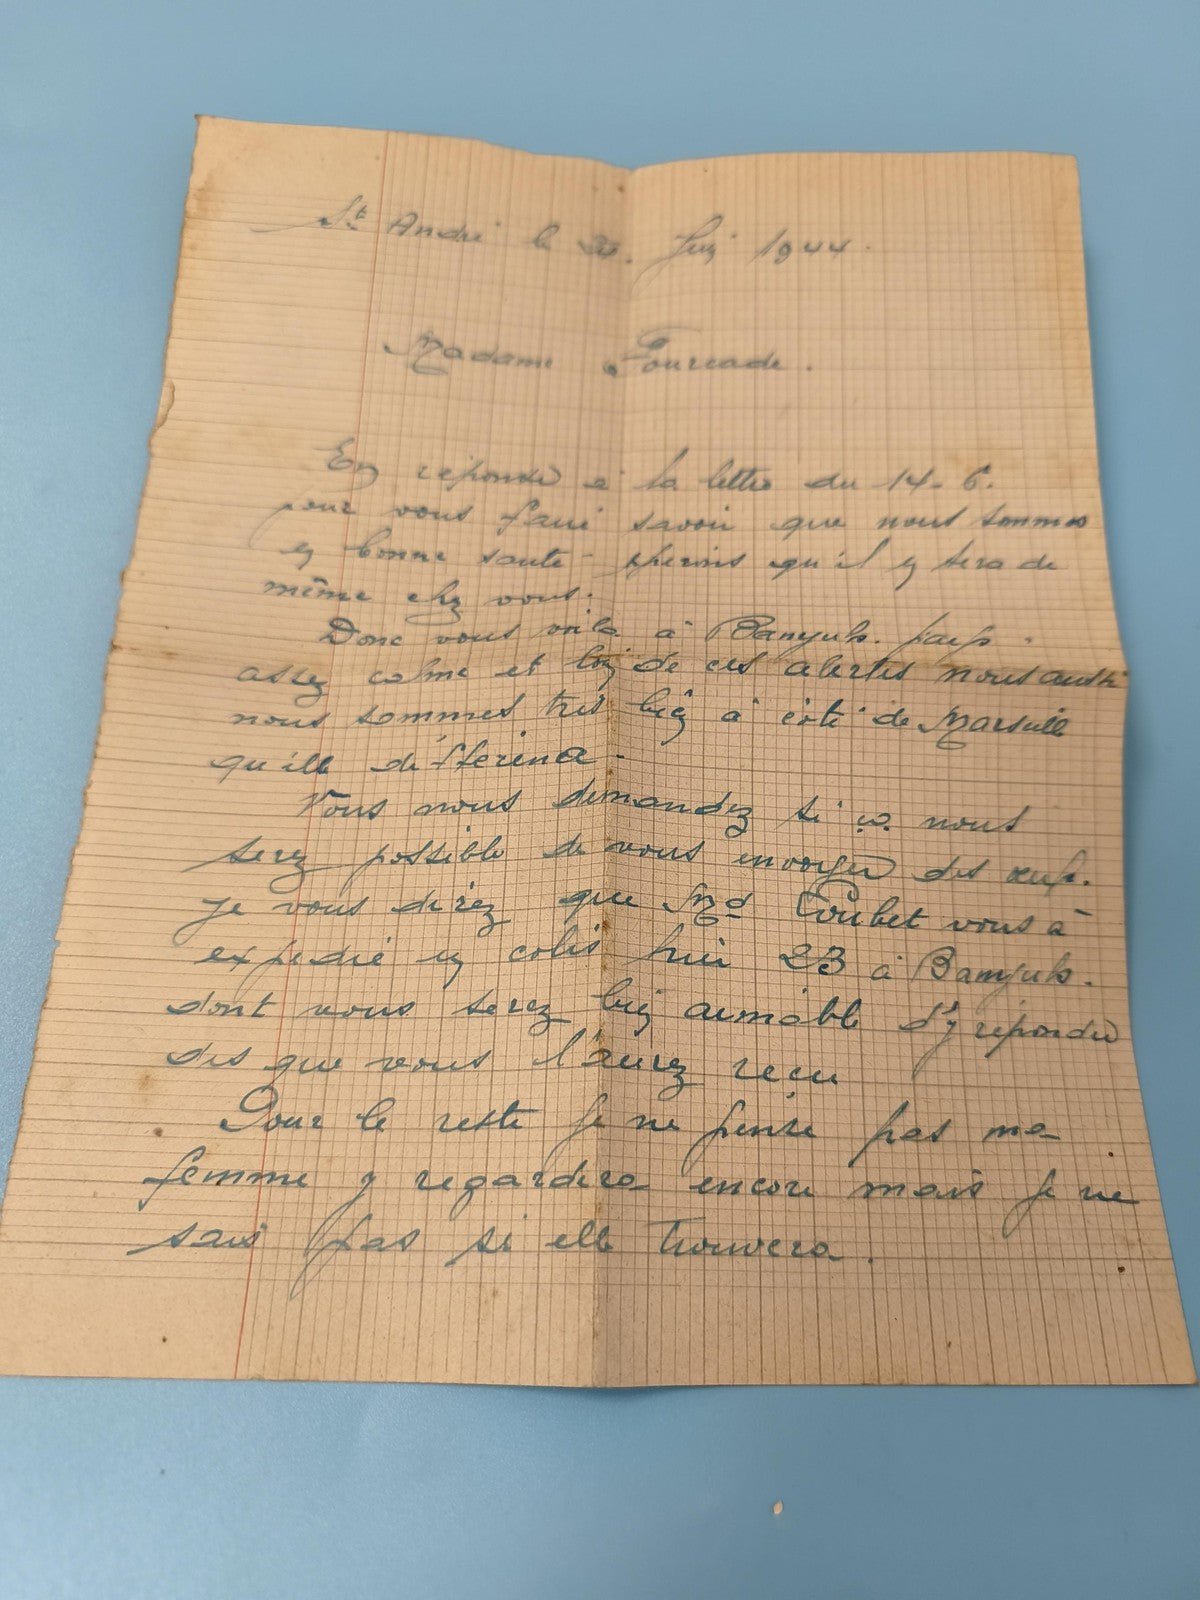 St André le 24. Juin 1944.
Madame Fourcade.
En réponse à la lettre du 14-6.
pour vous faire savoir que nous sommes
en bonne santé - éperons qu'il y sera de
même chez vous.
Donc vous voila à Banyuls. pays.
assez calme et loin de ces alertes nous aussi
nous sommes très bien à côté de Marseille
qu'elle différence -
Vous nous demandez si ça nous
serez possible de vous envoyer des œufs.
je vous direz que Md Coubet vous à
expédié un colis hier 23 à Banyuls.
dont vous serez bien aimable d'y répondre
des que vous l'aurez recu
Pour le reste je ne pense pas ma
femme y regardera encore mais je ne
sais pas si elle trouvera.